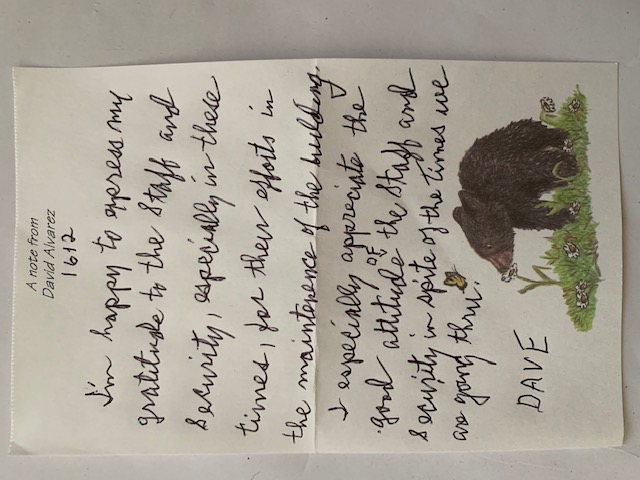 A note from
David Alvarez
1612
I'm happy to express my
gratitude to the Staff and
Security, especially in these
times, for their efforts in
the maintenence of the building.
I especially appreciate the
good attitude of the Staff and
Security in spite of the times we
are going thru.
DAVE